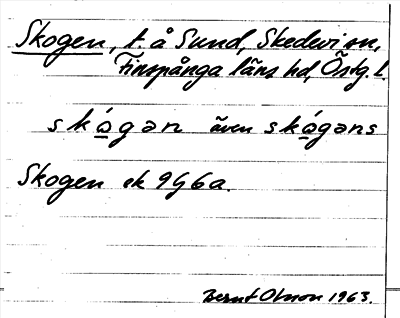 Skogen, t. å Sund, Skedevi sn,
Finspånga läns hd, Östg. l.
skǫ́gən även skǫ́gəns
Skogen ek 9G6a.
Bernt Olsson 1963.